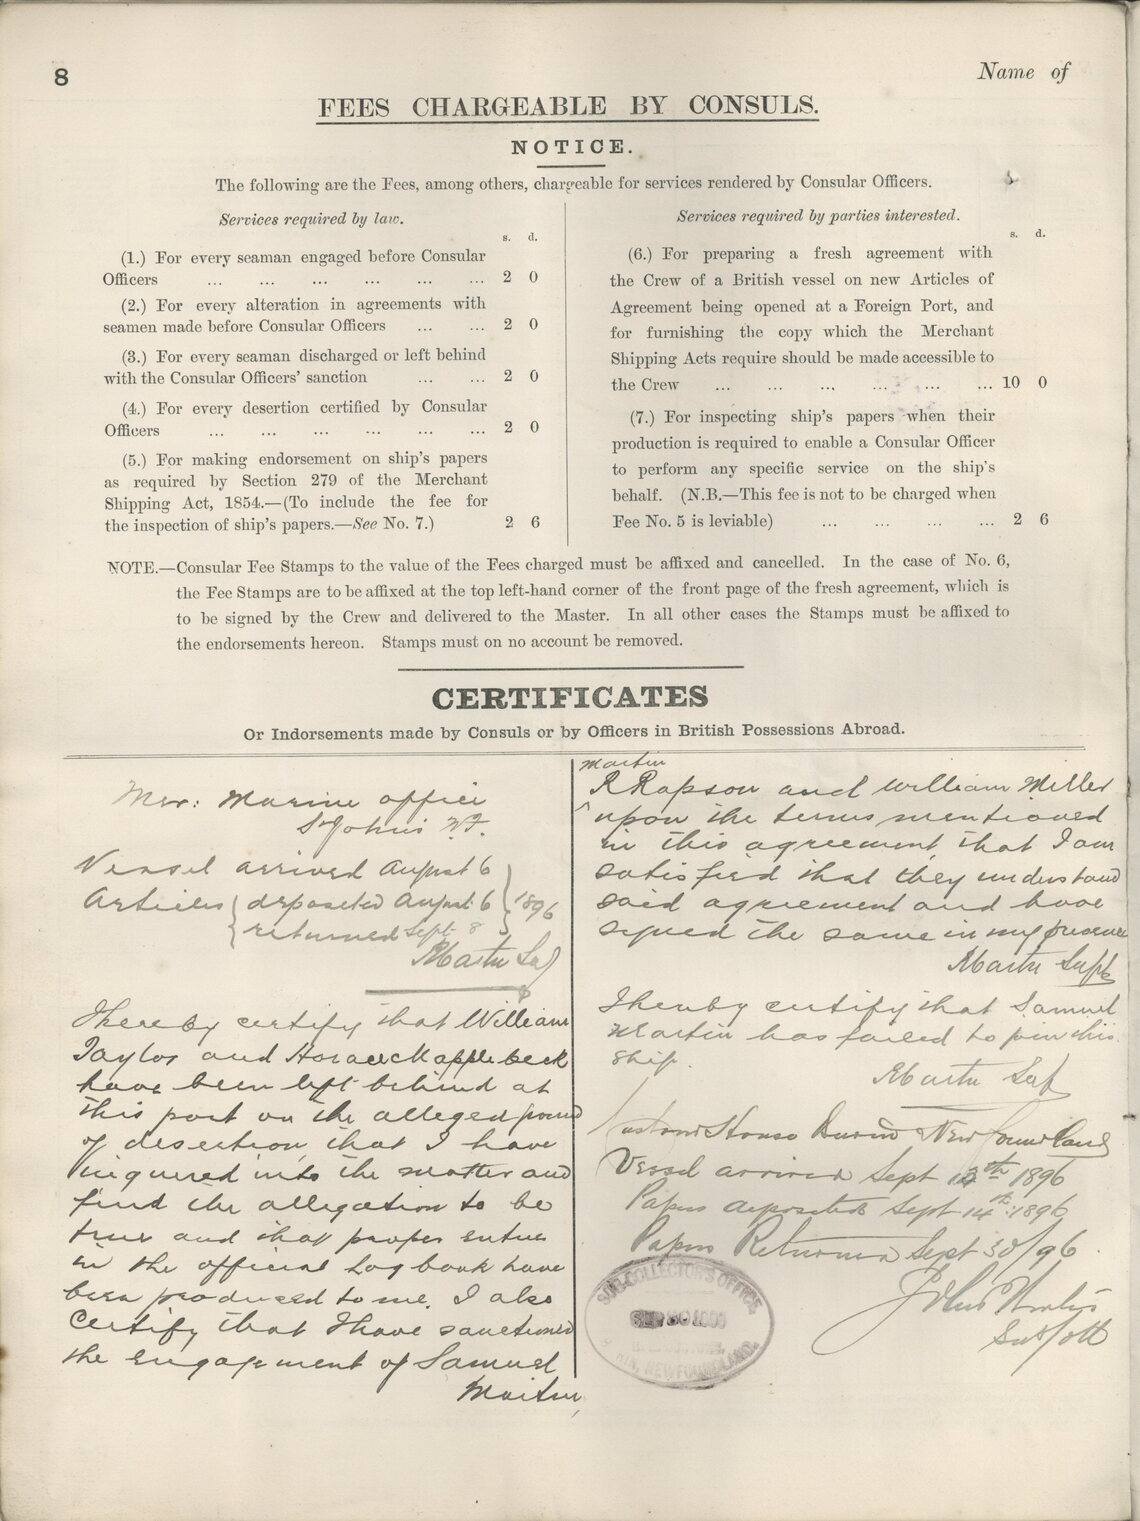 8
Name of
FEES CHARGEABLE BY CONSULS.
NOTICE.
The following are the Fees, among others, chargeable for services rendered by Consular Officers.
Services required by law.
s. d.
(1.) For every seaman engaged before Consular
Officers ... ... ... ... ... ... 2 0
(2.) For every alteration in agreements with
seamen made before Consular Officers ... ... 2 0
(3.) For every seaman discharged or left behind
with the Consular Officers' sanction ... ... 2 0
(4.) For every desertion certified by Consular
Officers ... ... ... ... ... ... 2 0
(5.) For making endorsement on ship's papers
as required by Section 279 of the Merchant
Shipping Act, 1854.—(To include the fee for
the inspection of ship's papers.—See No. 7.) 2 6
Services required by parties interested.
s. d.
(6.) For preparing a fresh agreement with
the Crew of a British vessel on new Articles of
Agreement being opened at a Foreign Port, and
for furnishing the copy which the Merchant
Shipping Acts require should be made accessible to
the Crew ... ... ... ... ... ... 10 0
(7.) For inspecting ship's papers when their
production is required to enable a Consular Officer
to perform any specific service on the ship's
behalf. (N.B.—This fee is not to be charged when
Fee No. 5 is leviable) ... ... ... ... 2 6
NOTE.—Consular Fee Stamps to the value of the Fees charged must be affixed and cancelled. In the case of No. 6,
the Fee Stamps are to be affixed at the top left-hand corner of the front page of the fresh agreement, which is
to be signed by the Crew and delivered to the Master. In all other cases the Stamps must be affixed to
the endorsements hereon. Stamps must on no account be removed.
CERTIFICATES
Or Indorsements made by Consuls or by Officers in British Possessions Abroad.
Mer: Marine office
St Johns N.F.
Vessel arrived August 6
Articles deposited August 6 1896
returned Sept 8
I hereby certify that William
Taylor and Horace Mapplebeck
have been left behind at
this port on the alleged ground
of desertion, that I have
inquired into the matter and
find the allegation to be
true and that proper entries
in the official Log book have
been produced to me. I also
Certify that I have sanctioned
the engagement of Samuel
Martin,
Martin
R Rapson and William Miller
upon the terms mentioned
in this agreement, that I am
satisfied that they understand
said agreement and have
signed the same in my presence
I hereby certify that Samuel
Martin has failed to join this
ship.
Custom House Burin Newfoundland
Vessel arrived Sept 12th 1896
Papers deposited Sept 14th 1896
Papers Returned Sept 30/96
SUB-COLLECTOR'S OFFICE,
BURIN, NEWFOUNDLAND.